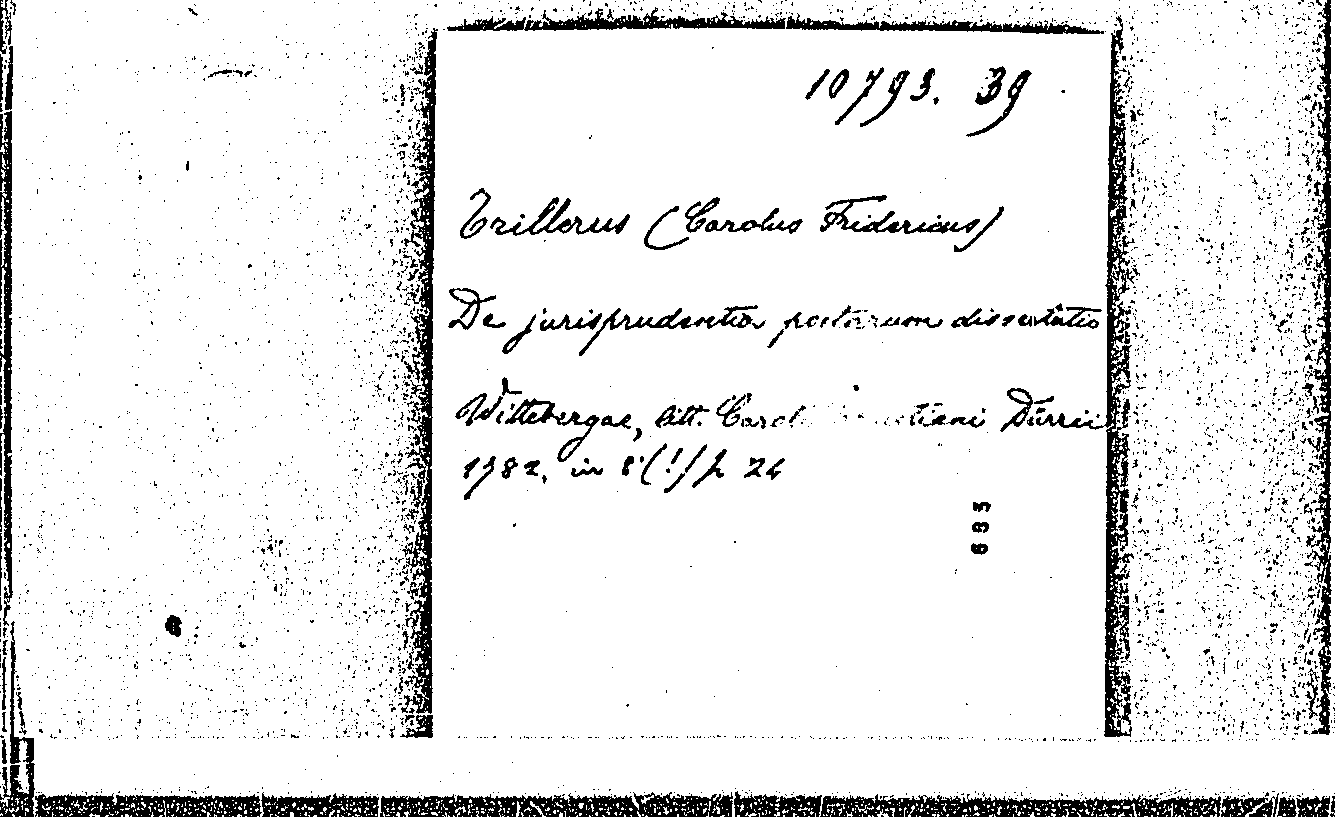 10793. 39
Trillerus (Carolus Fridericus)
De jurisprudentia poetarum dissertatio
Wittebergae, litt. Dürrii
1782. in 8°(!) p. 24
685